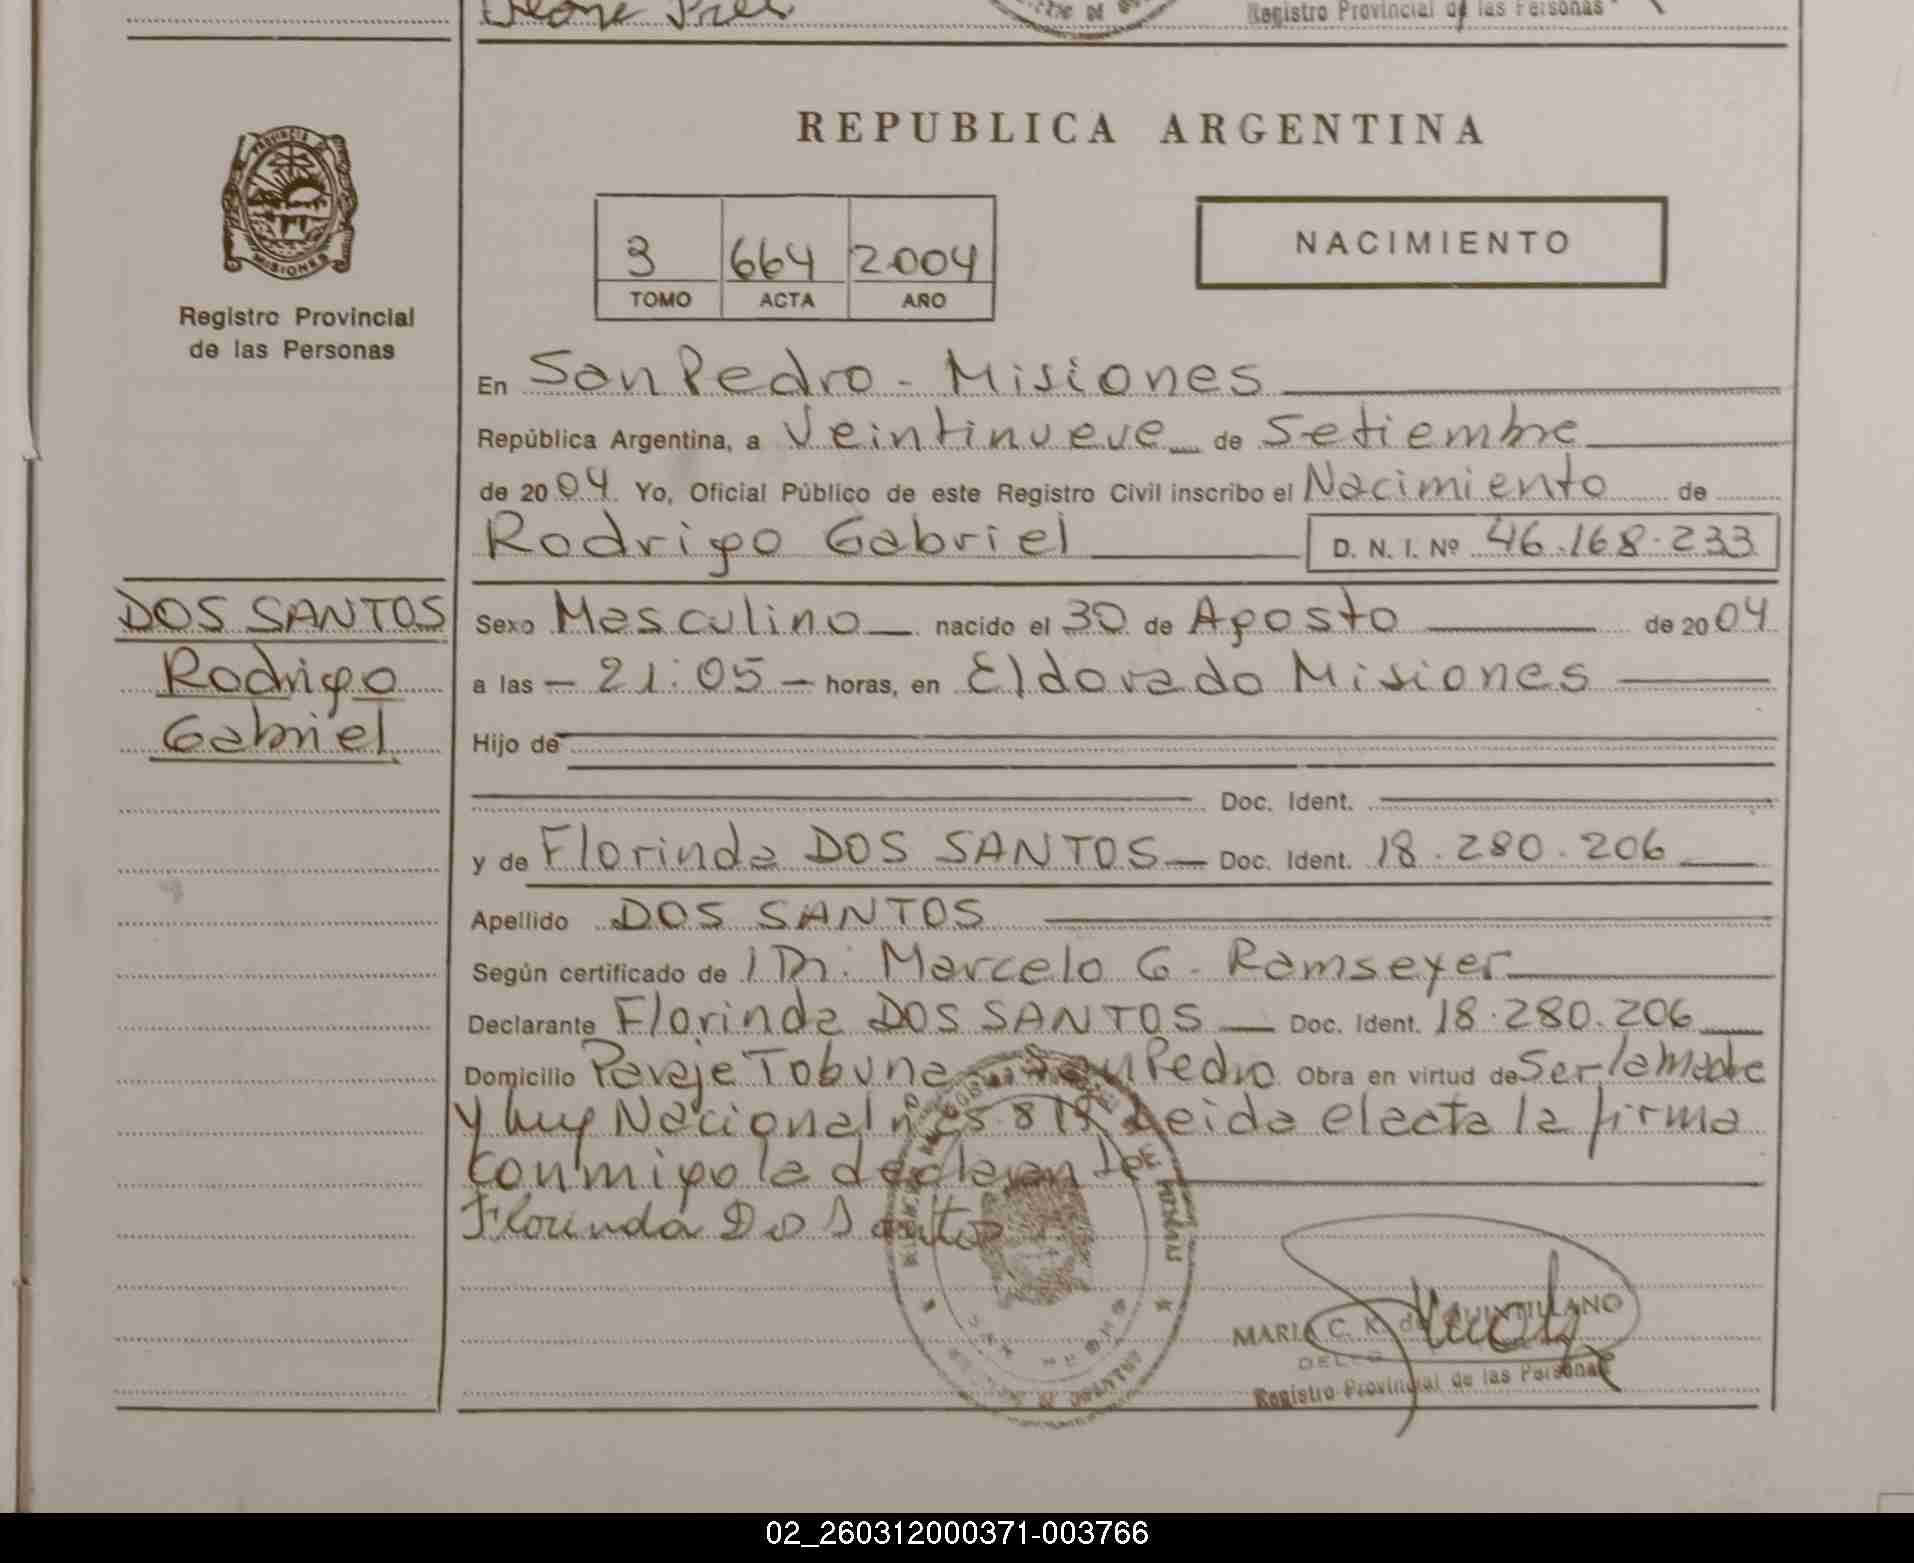 Registro Provincial de las Personas
REPUBLICA ARGENTINA
PROVINCIA
MISIONES
Registro Provincial
de las Personas
3 664 2004
TOMO ACTA AÑO
NACIMIENTO
En San Pedro - Misiones
República Argentina, a Veintinueve de Setiembre
de 2004 Yo, Oficial Público de este Registro Civil inscribo el Nacimiento de
Rodrigo Gabriel D. N. I. Nº 46.168.233
DOS SANTOS
Rodrigo
Gabriel
Sexo Masculino nacido el 30 de Agosto de 2004
a las - 21:05 - horas, en Eldorado Misiones
Hijo de
Doc. Ident.
y de Florinda DOS SANTOS Doc. Ident. 18.280.206
Apellido DOS SANTOS
Según certificado de Dr. Marcelo G. Ramseyer
Declarante Florinda DOS SANTOS Doc. Ident. 18.280.206
Domicilio Paraje Tobuna San Pedro Obra en virtud de Ser la Madre
y Ley Nacional Leida el acta la firma
conmigo la declarante
Florinda Dos Santos
MARIA C. K. de QUINTILLANO
Registro Provincial de las Personas
02_260312000371-003766